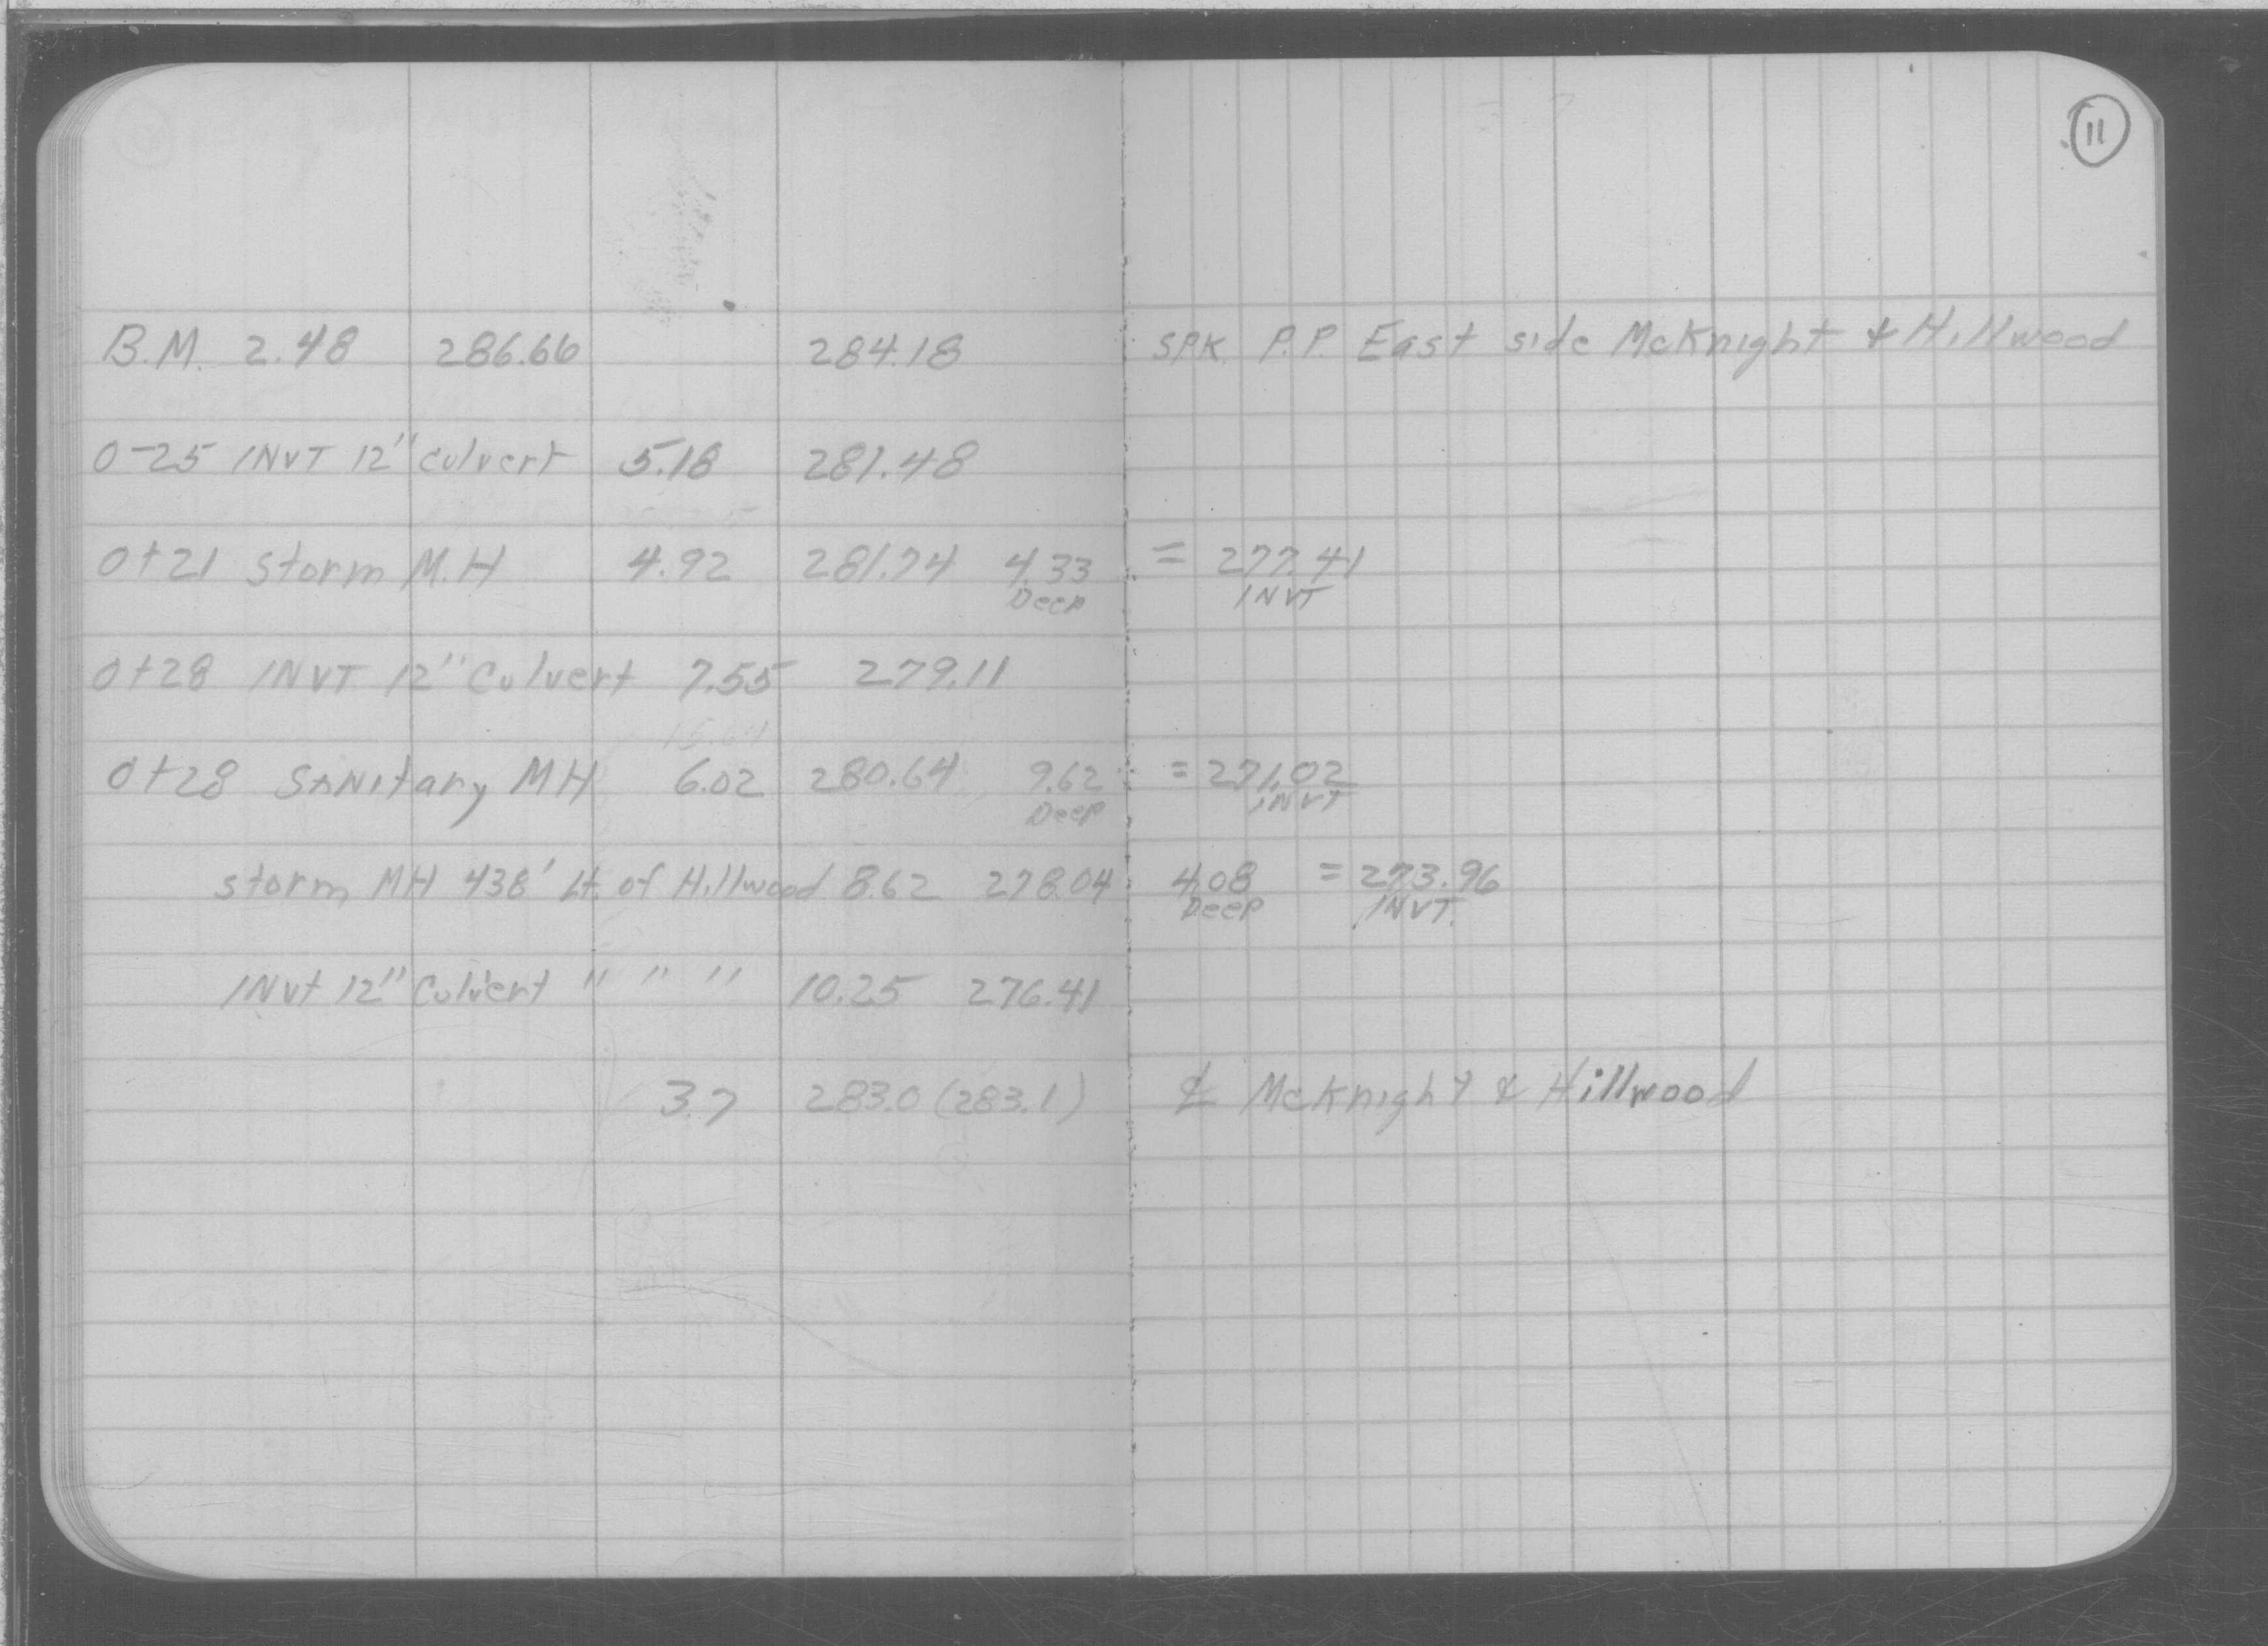 11
B.M. 2.48 286.66 284.18 SPK. P.P. East side McKnight & Hillwood
0-25 INVT 12" culvert 5.18 281.48
0+21 storm M.H 4.92 281.74 4.33 = 277.41
Deep INVT
0+28 INVT 12" Culvert 7.55 279.11
0+28 SANitary MH 6.02 280.64 9.62 = 271.02
Deep INVT
storm MH 438' Lt. of Hillwood 8.62 278.04 4.08 = 273.96
Deep INVT.
INVt 12" Culvert " " " 10.25 276.41
3.7 283.0 (283.1) ℄ McKnight & Hillwood